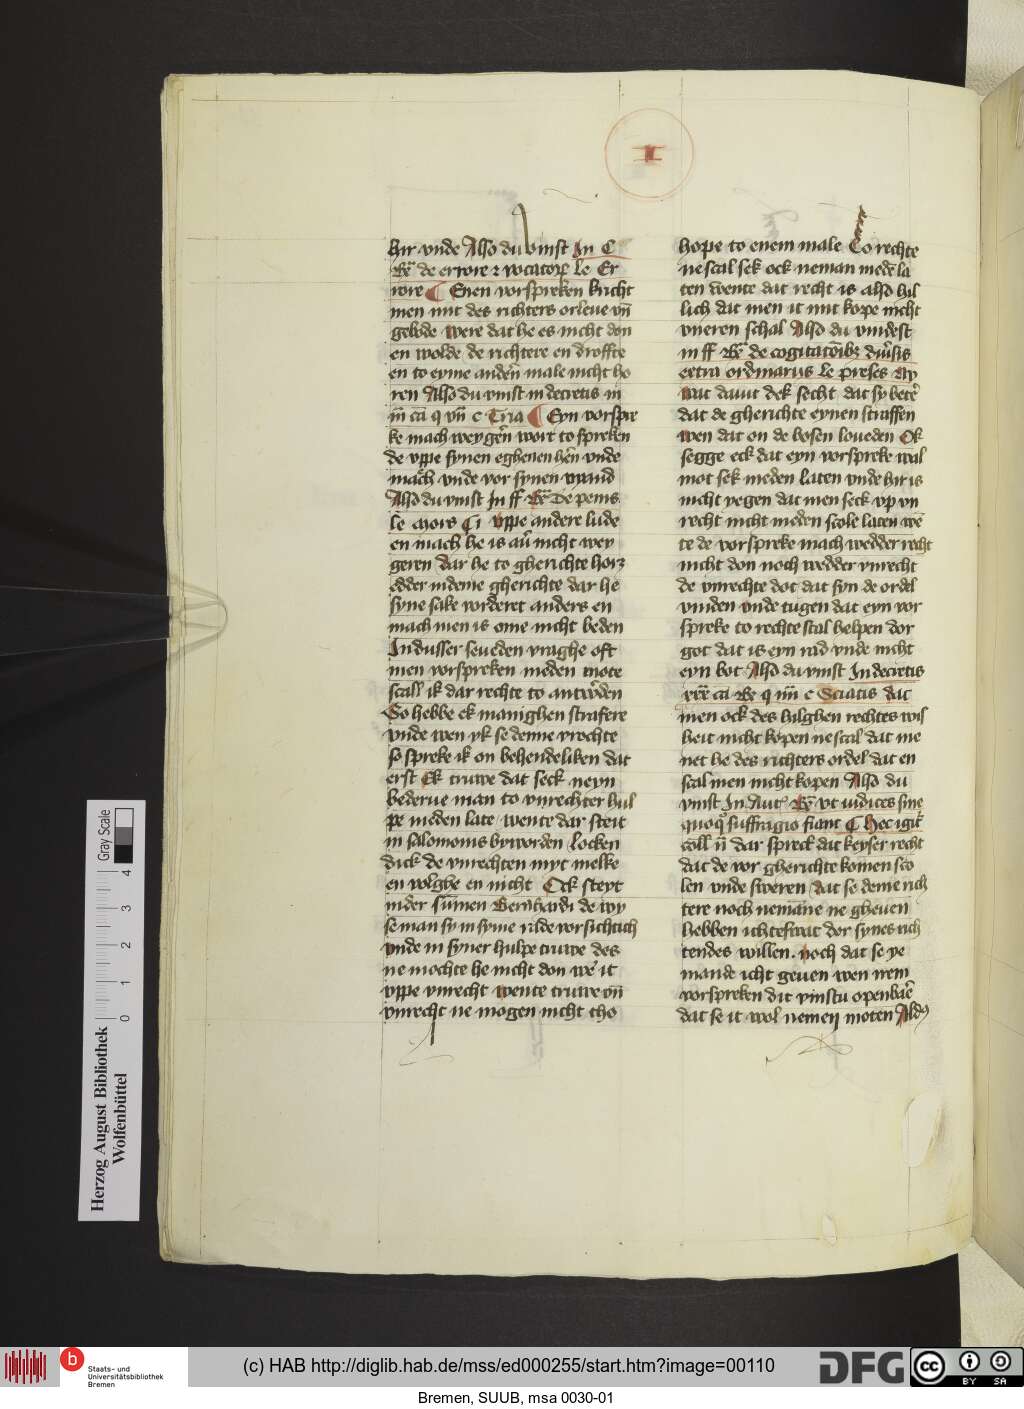 I
hir vnde Also du vinst In C
Rᵃ de errore ⁊ vocatorꝫ le Er
rore ¶ Enen vorspreken kricht
men mit des richters orleue vn̄
gebode were dat he es nicht don
en wolde de richtere en droffte
en to eyme andern̄ male nicht ho
ren Also du vinst in decretis in
iii cā q vii c Tria ¶ Eyn vorspre
ke mach weygern̄ wort to spreken
de vppe synen eghenen hern̄ vnde
mach vnde vor synen vyand
Also du vinst In ff Rᵃ De penis
le mors Ci vppe andere lude
en mach he is auͤ nicht wey
geren dar he to gherichte horꝫ
edder in deme gherichte dar he
syne sake vorderet anders en
mach men is eme nicht beden
In dusser seueden vraghe oft
men vorspreken meden mote
scall ik dar rechte to antwͦden
So hebbe ek manighen strafere
vnde wen yk se denne vrochte
so spreke ik on behendeliken dat
erst Ek truwe dat seck neyn
bederue man to vnrechter hul
pe meden late wente dar steit
in salomonis byworden locken
dick de vnrechten myt melke
en volghe en nicht Ock steyt
in der sūmen Bernhardi de wy
se man sy in syme rade vorsichtich
vnde in syner hulpe truwe des
ne mochte he nicht don weͤ it
vppe vnrecht wente truwe vn̄
vnrecht ne mogen nicht tho
hope to enem male To rechte
ne scal sek ock neman medē la
ten wente dat recht is also hil
lich dat men it mit kope nicht
vneren schal Also du vindest
in ff Rᵃ de cogitatōibꝫ diuͤsis
extra ordinariis le preses Ay
wat dauit dek secht dat sy beteͤ
dat de gherichte eynen straffen
wen dat on de bosen loueden Ok
segge eck dat eyn vorspreke wal
mot sek meden laten vnde hir is
nicht yegen dat men seck vp vn
recht nicht meden scole laten wē
te de vorspreke mach wedder recht
nicht don noch wedder vnrecht
de vnrechte dot dat syn de ordel
vinden vnde tugen dat eyn vor
spreke to rechte scal helpen dor
got dat is eyn rad vnde nicht
eyn bot Also du vinst In decretis
cā Rᵃ q iiii c Sciatis dat
men ock des hilghen rechtes wis
heit nicht kopen ne scal dat me
net he des richters ordel dat en
scal men nicht kopen Also du
vinst In Autᵗ Rᵃ vt iudices sine
quoqͦ suffragio fiant ¶ Hec igitᵘ
coll ii dar spreck dat keyser recht
dat de vor gherichte komen sco
len vnde sweren dat se deme rich
tere noch nemāne ne gheuen
hebben ichteswat dor synes rich
tendes willen. noch dat se ye
mande icht geuen wen irem
vorspreken dit vinstu openbaͤre
dat se it wol nemen moten Aldꝰ
Herzog August Bibliothek
Wolfenbüttel
Gray Scale
0 1 2 3 4
b Staats- und
Universitätsbibliothek
Bremen
(c) HAB http://diglib.hab.de/mss/ed000255/start.htm?image=00110
DFG
cc BY SA
Bremen, SUUB, msa 0030-01